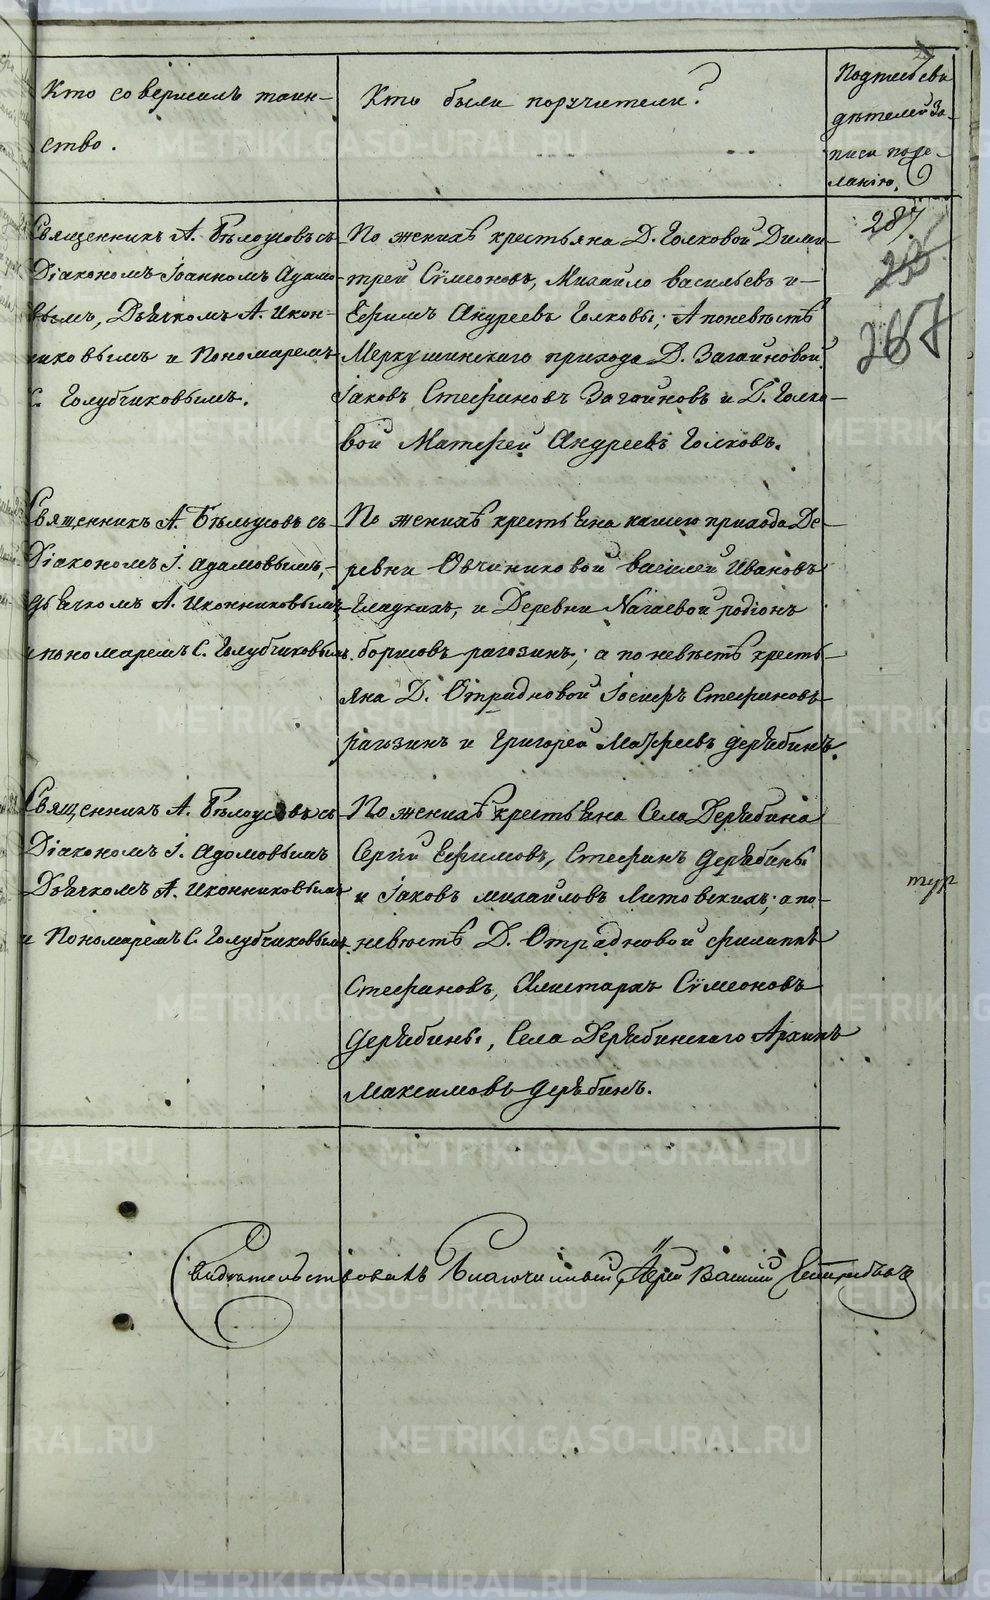 Кто совершилъ таин-
ство.
Кто были поручители?
Подпись сви
дѣтелей за-
писи по же-
ланію.
287
267
Священникъ А. Бѣлоусовъ съ
Діакономъ Іоанномъ Адамо-
вымъ, Дьячкомъ А. Икон-
никовымъ и Пономаремъ
С. Голубчиковымъ.
По женихѣ крестьяна Д. Голковой Дими-
трей Сѵмеоновъ, Михайло васильевъ и
Ефимъ Андреевъ Голковы; А по невѣстѣ
Меркушинскаго прихода Д. Загайновой
Іаковъ Стефановъ Загайновъ и Д. Голко-
вой Матфей Андреевъ Голковъ.
Священникъ А. Бѣлоусовъ съ
Діакономъ І. Адамовымъ,
дьячкомъ А. Иконниковымъ,
и пономаремъ С. Голубчиковымъ.
По женихѣ крестьяна нашего прихода Де-
ревни Овчиниковой василей Ивановъ
Гладкихъ, и Деревни Нагаевой родіонъ
борисовъ рагозинъ; а по невѣстѣ кресть-
яна Д. Отрадновой Іосифъ Стефановъ
рагозинъ и Григорей Матфеевъ дерябинъ.
Священникъ А. Бѣлоусовъ съ
Діакономъ І. Адомовымъ
Дьячкомъ А. Иконниковымъ
и Пономаремъ С. Голубчиковымъ
По женихѣ крестьяна Села Дерябина
Сергій Ефимовъ, Стефанъ дерябины
и Іаковъ михайловъ Литовскихъ; а по
невѣстѣ Д. Отрадновой филиппъ
Стефановъ, Аристархъ Сѵмеоновъ
дерябины, Села Дерябинскаго Архипъ
Максимовъ дерябинъ.
Свидѣтельствовалъ Благочинный Іерей Василій
METRIKI.GASO-URAL.RU